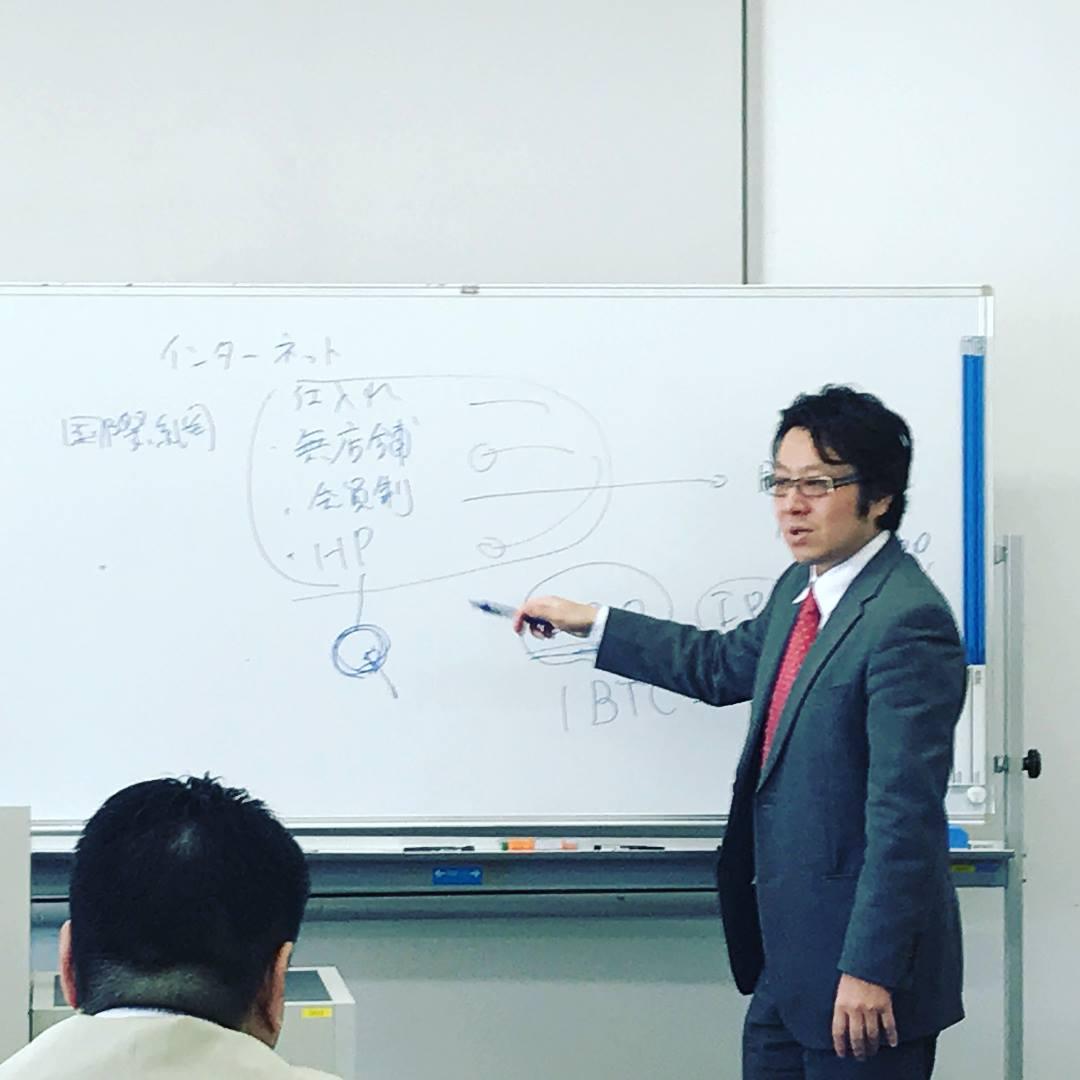 インターネット
仕入れ
国際網
・無店舗
・会員制
・HP
IP
1 BTC